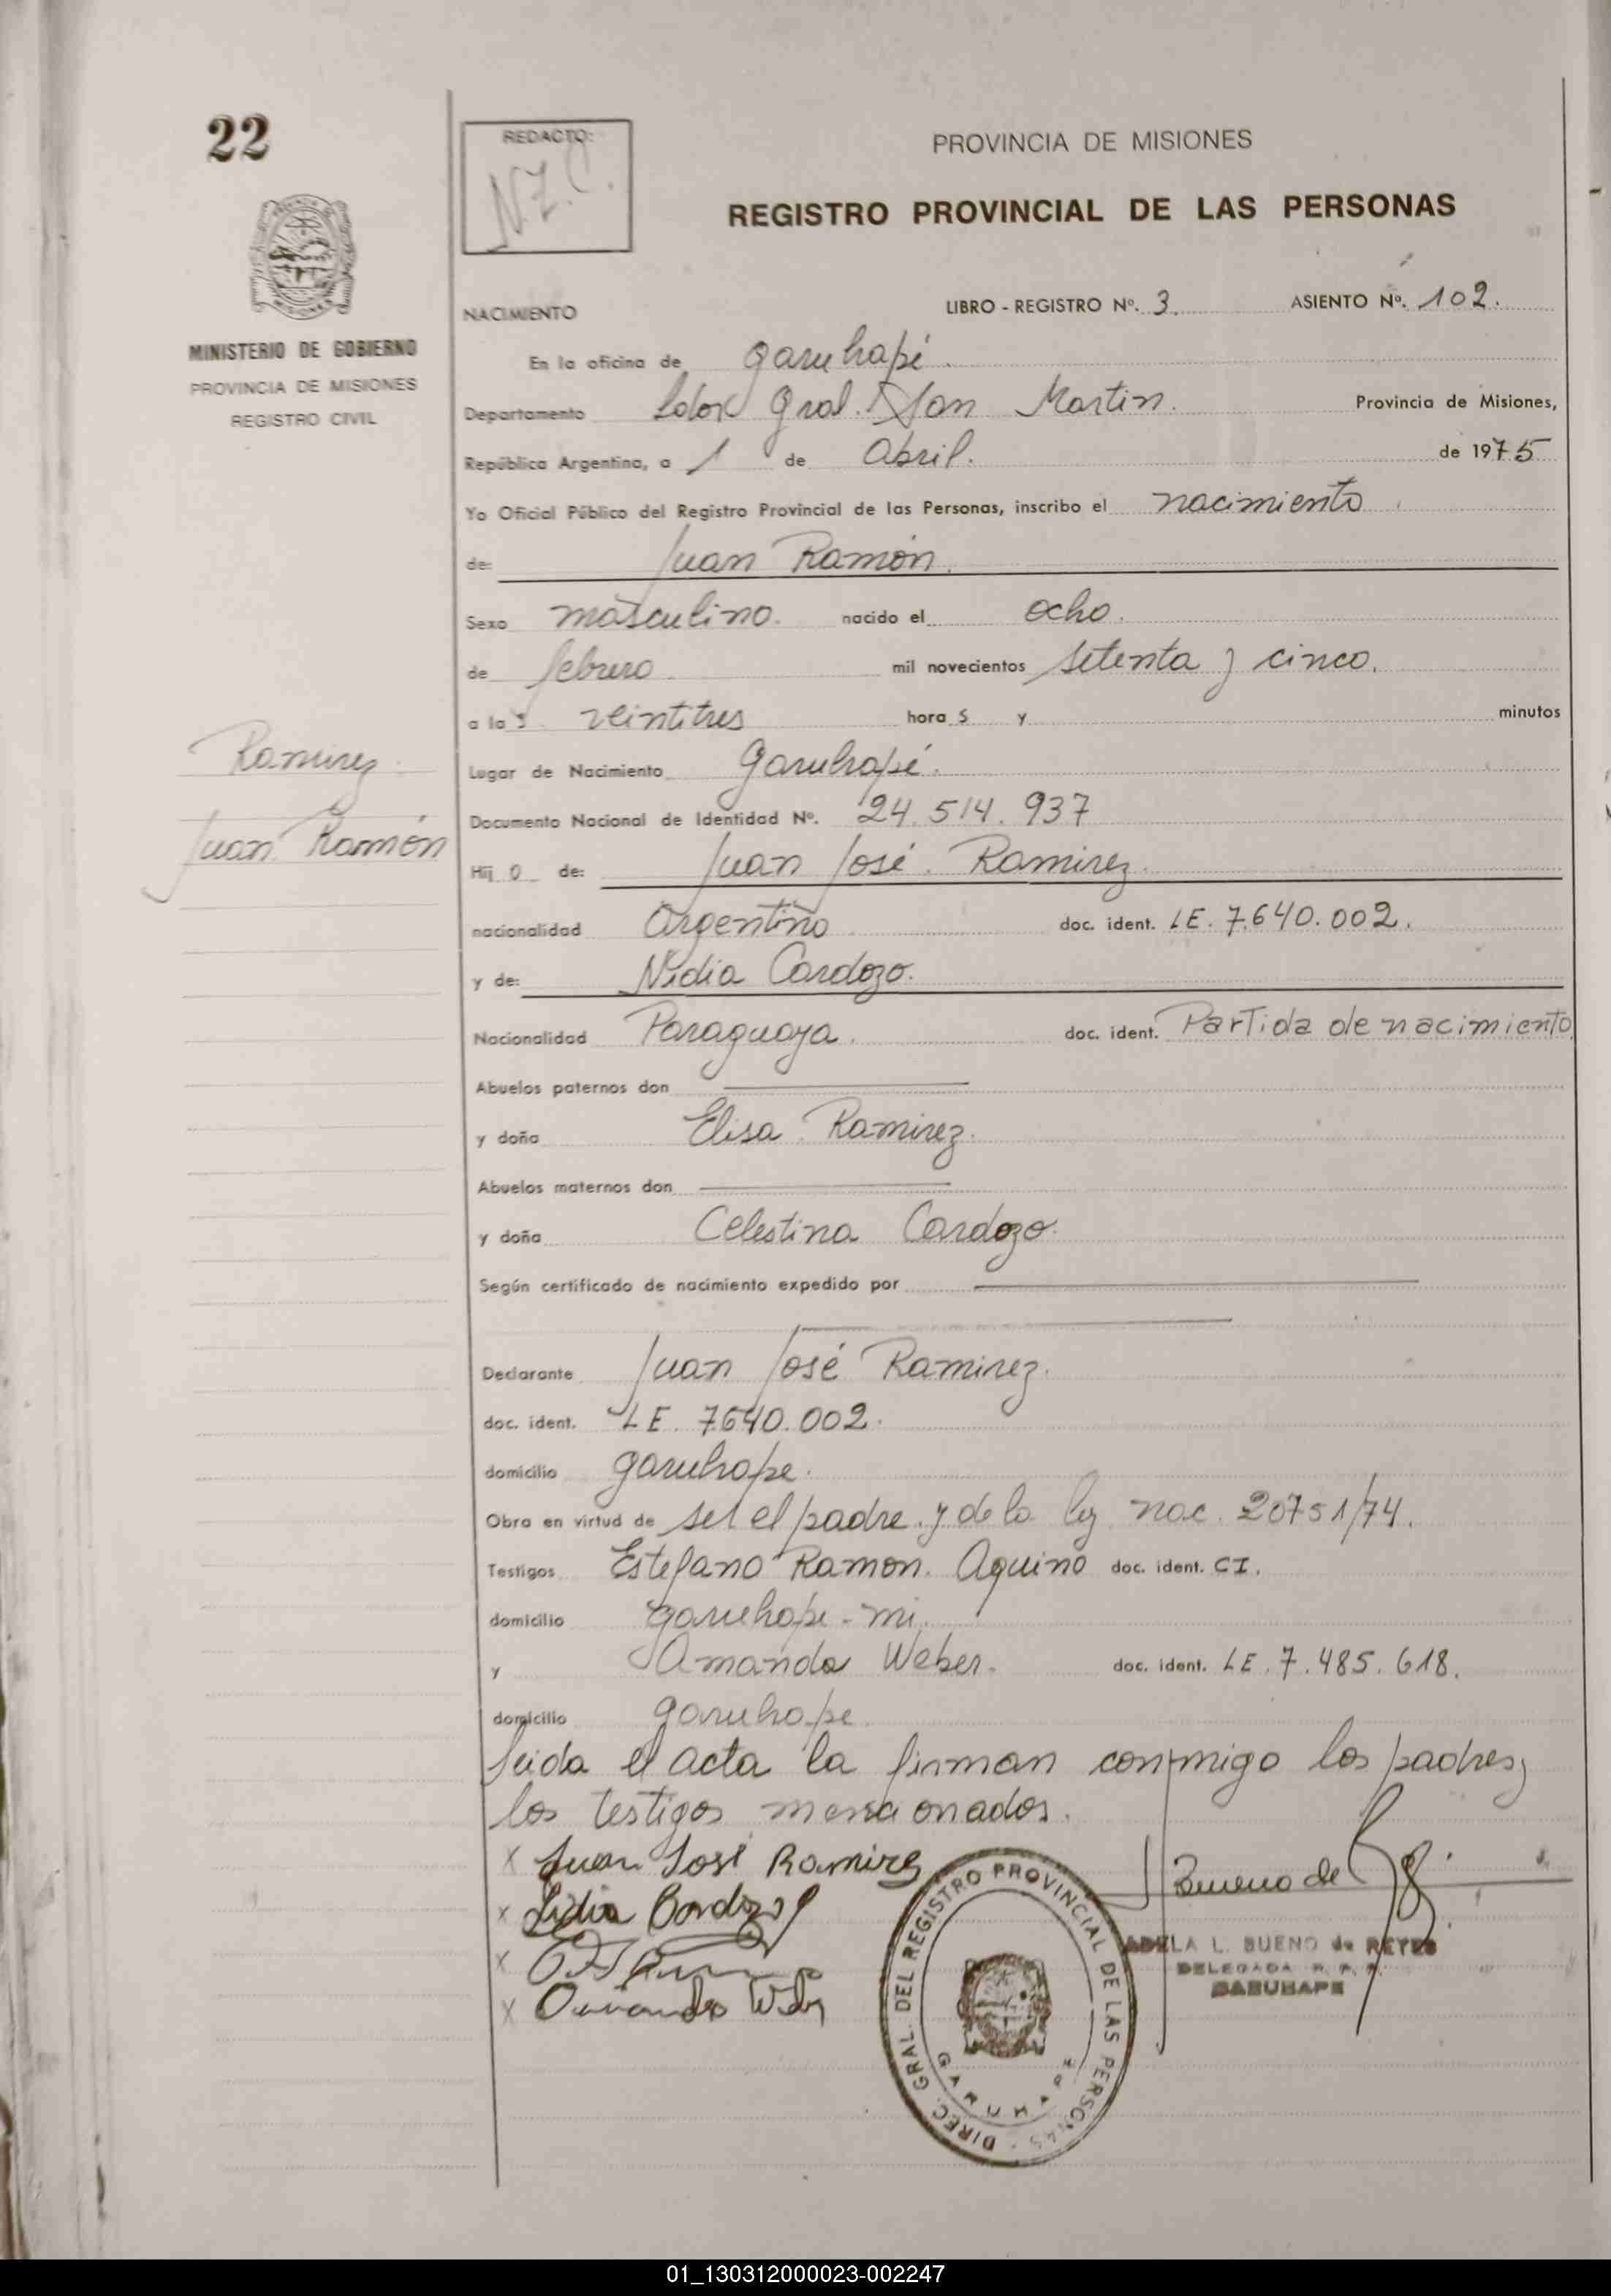 22
REDACTO:
N.Z.C.
PROVINCIA DE MISIONES
REGISTRO PROVINCIAL DE LAS PERSONAS
MINISTERIO DE GOBIERNO
PROVINCIA DE MISIONES
REGISTRO CIVIL
NACIMIENTO LIBRO - REGISTRO Nº. 3. ASIENTO Nº. 102.
En la oficina de Garuhapé.
Departamento Ldor Gral. San Martin. Provincia de Misiones,
República Argentina, a 1 de Abril. de 1975
Yo Oficial Público del Registro Provincial de las Personas, inscribo el nacimiento
de: Juan Ramón.
Sexo masculino. nacido el ocho.
de febrero. mil novecientos setenta y cinco.
a las veintitres horas y minutos
Ramirez
Juan Ramón
Lugar de Nacimiento Garuhapé.
Documento Nacional de Identidad Nº. 24.514.937
Hijo de: Juan José Ramirez.
nacionalidad Argentino doc. ident. LE. 7.640.002.
y de: Nidia Cardozo.
Nacionalidad Paraguaya. doc. ident. Partida de nacimiento
Abuelos paternos don
y doña Elisa Ramirez.
Abuelos maternos don
y doña Celestina Cardozo.
Según certificado de nacimiento expedido por
Declarante Juan José Ramirez.
doc. ident. LE. 7640.002.
domicilio Garuhape.
Obra en virtud de ser el padre y de la ley nac. 20751/74.
Testigos Estefano Ramon. Aquino doc. ident. CI.
domicilio garuhape-mi.
y Amando Weber. doc. ident. LE. 7.485.618.
domicilio garuhape.
Leida el acta la firman conmigo los padres y
los testigos mencionados.
x Juan José Ramirez
x Lidia Cardozo
x
x Amando Weber
Bueno de
ADELA L. BUENO de REYES
DELEGADA R. P. P.
GARUHAPE
DIREC. GRAL. DEL REGISTRO PROVINCIAL DE LAS PERSONAS
GARUHAPE
01_130312000023-002247